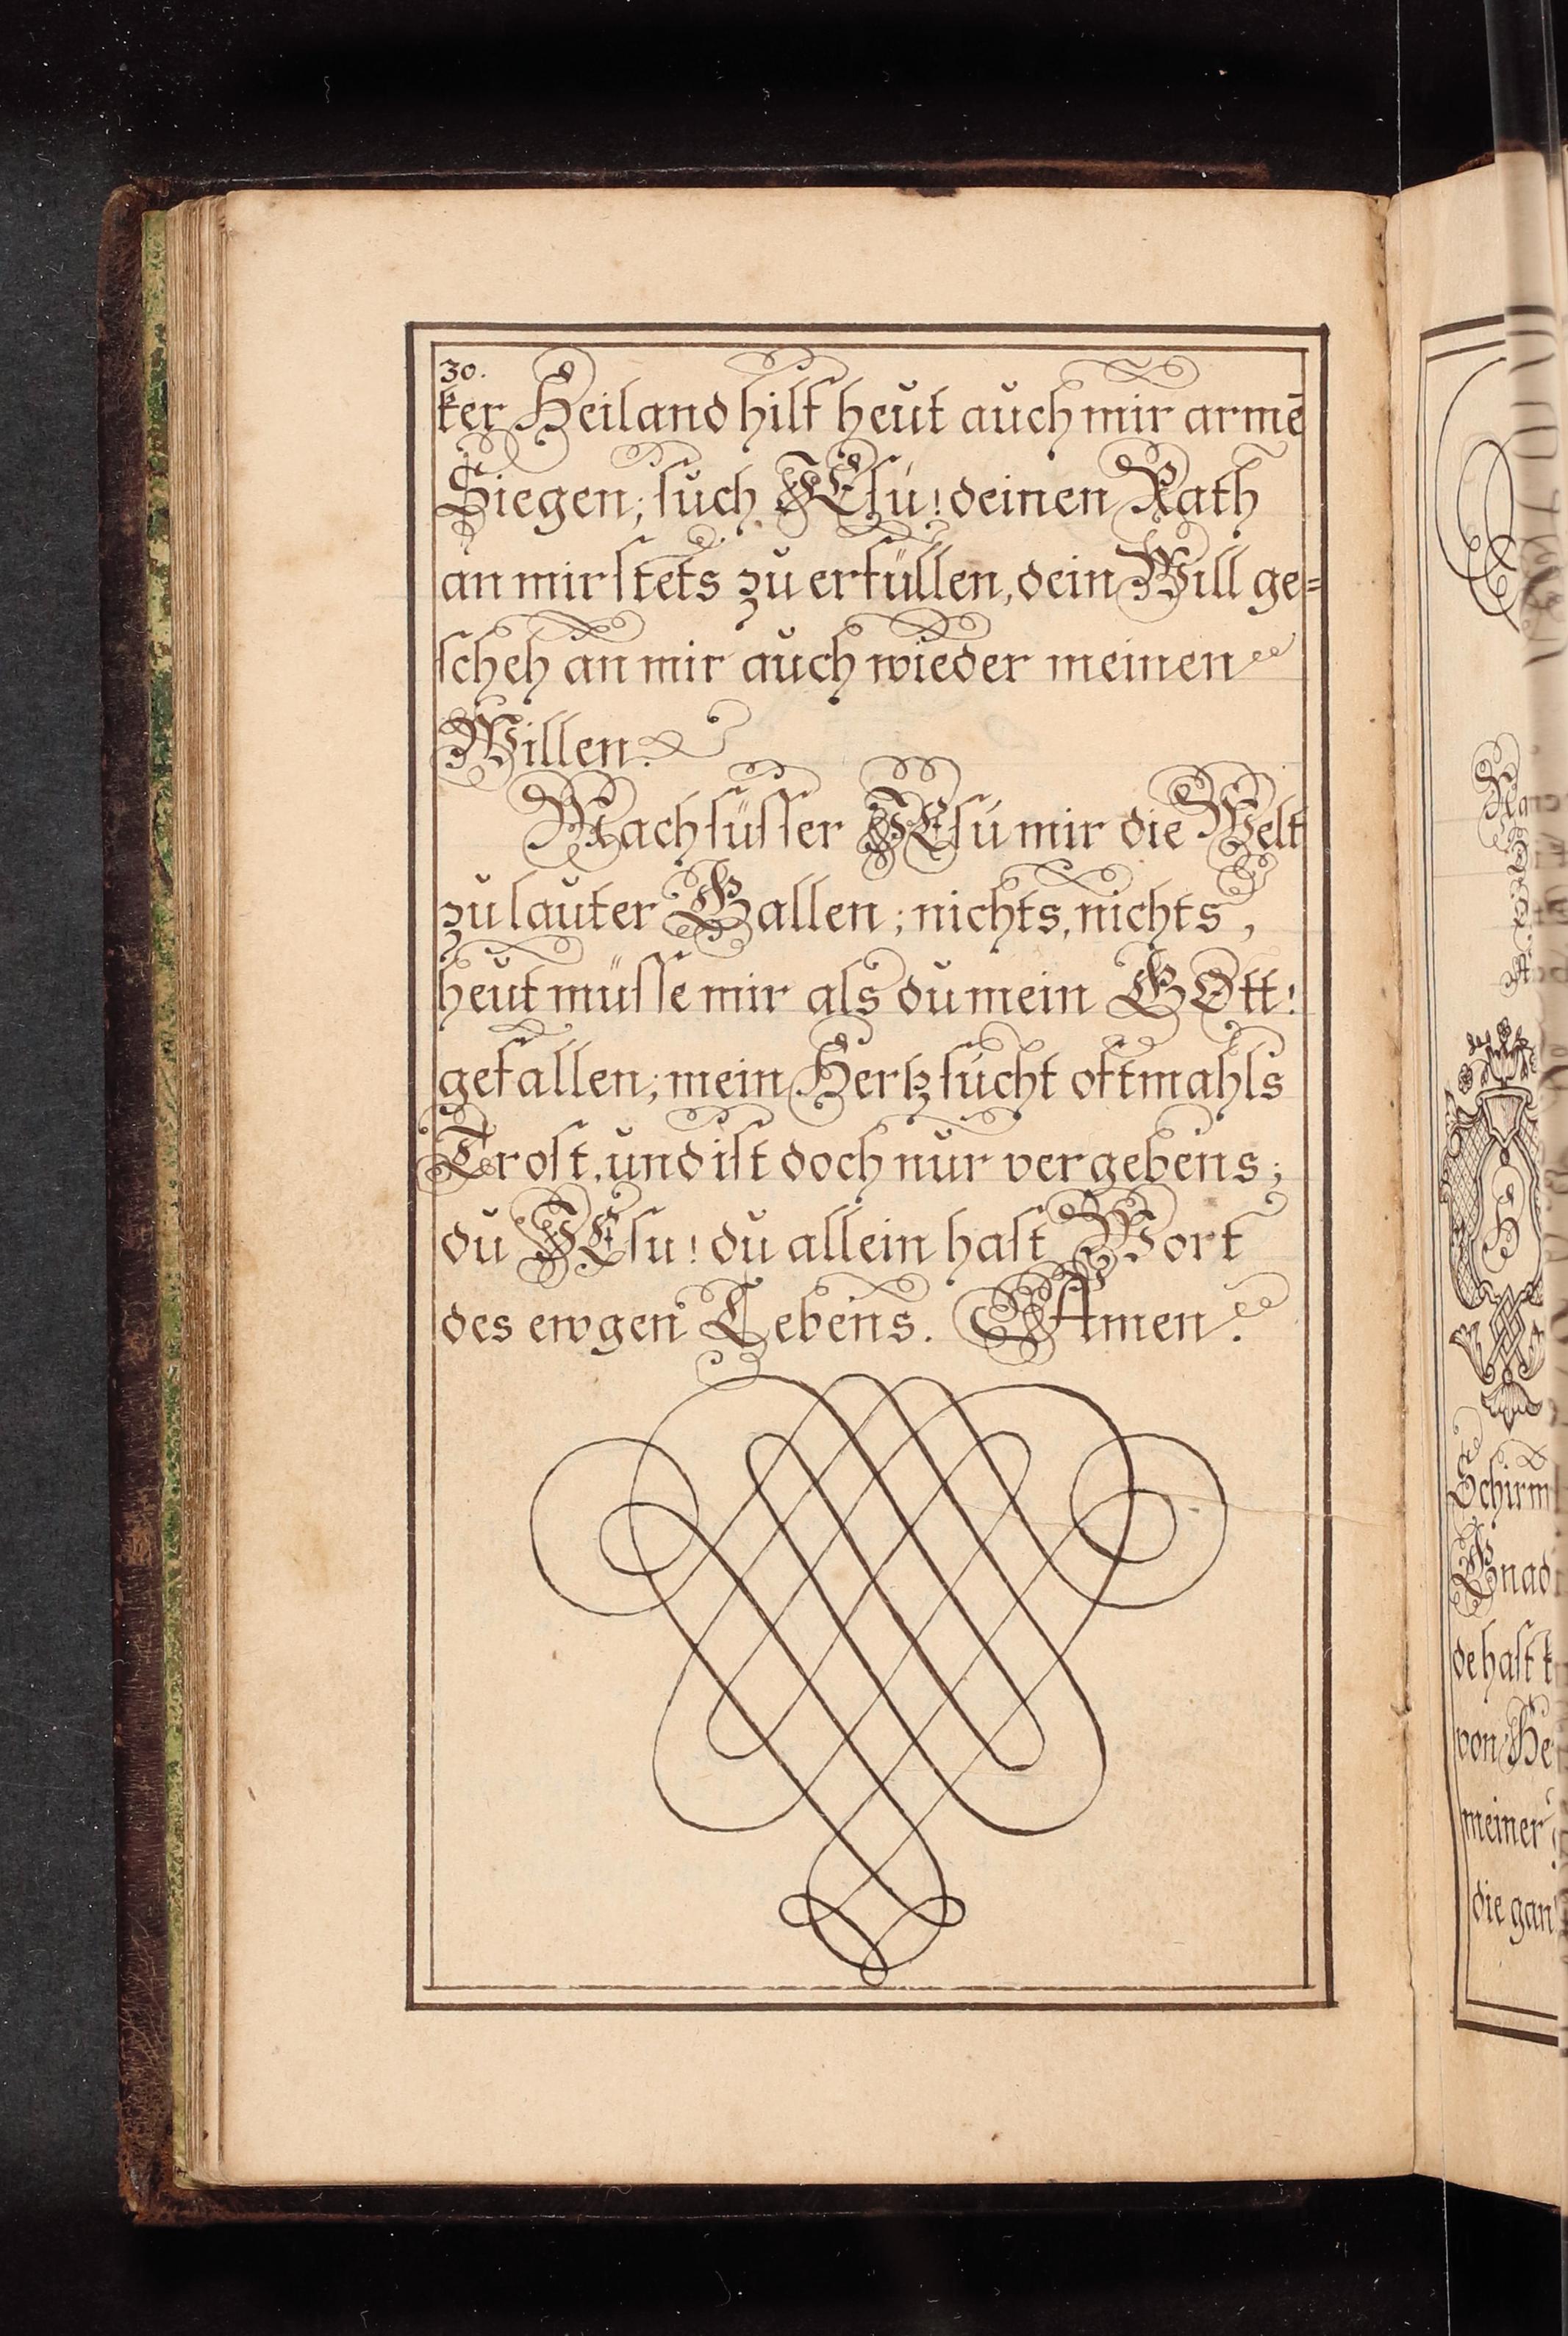 30.
ker Heiland hilf heut auch mir armē
Siegen; such JEsu! deinen Rath
an mir stets zu erfüllen, dein Will ge=
scheh an mir auch wieder meinen
Willen.
Mach süsser JEsu mir die Welt
zu lauter Gallen; nichts, nichts,
heut müsse mir als du mein GOtt!
gefallen; mein Hertz sucht oftmahls
Trost, und ist doch nur vergebens;
du JEsu! du allein hast Wort
des ewgen Lebens. Amen.
H
Schirm
Gnad
de hast k
von He
meiner
die gan